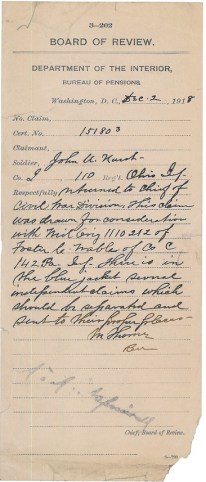 3-202
BOARD OF REVIEW.
DEPARTMENT OF THE INTERIOR,
BUREAU OF PENSIONS,
Washington, D. C., Dec. 2, 1918
No. Claim,
Cert. No. 151803
Claimant,
Soldier, John A.
Co. I 110 Reg't. Ohio Inf.
Respectfully returned to Chief of
Civil War Division. This claim
was drawn for consideration
with Mil Orig 1110212 of
Foster Co C
142 Pa. Inf. There is in
the blue jacket several
independent claims which
should be separated and
sent to their proper places
M
Chief, Board of Review.